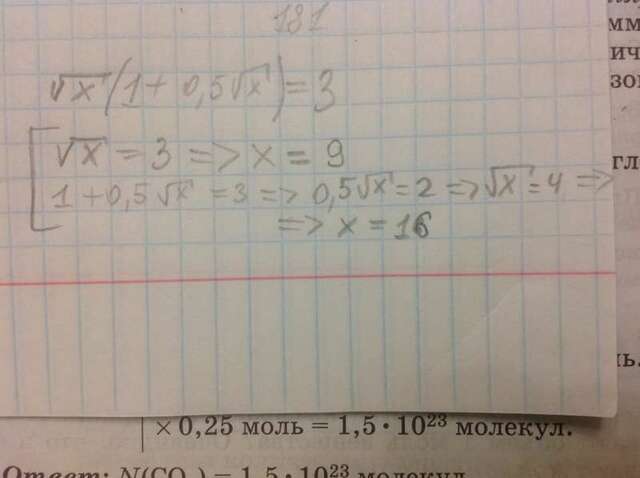 181
√x (1 + 0,5√x) = 3
√x = 3 => x = 9
1 + 0,5√x = 3 => 0,5√x = 2 => √x = 4 =>
=> x = 16
мм
ич
зо
гл
нь.
× 0,25 моль = 1,5 · 10²³ молекул.
Ответ: N(CO₂) = 1,5 · 10²³ молекул